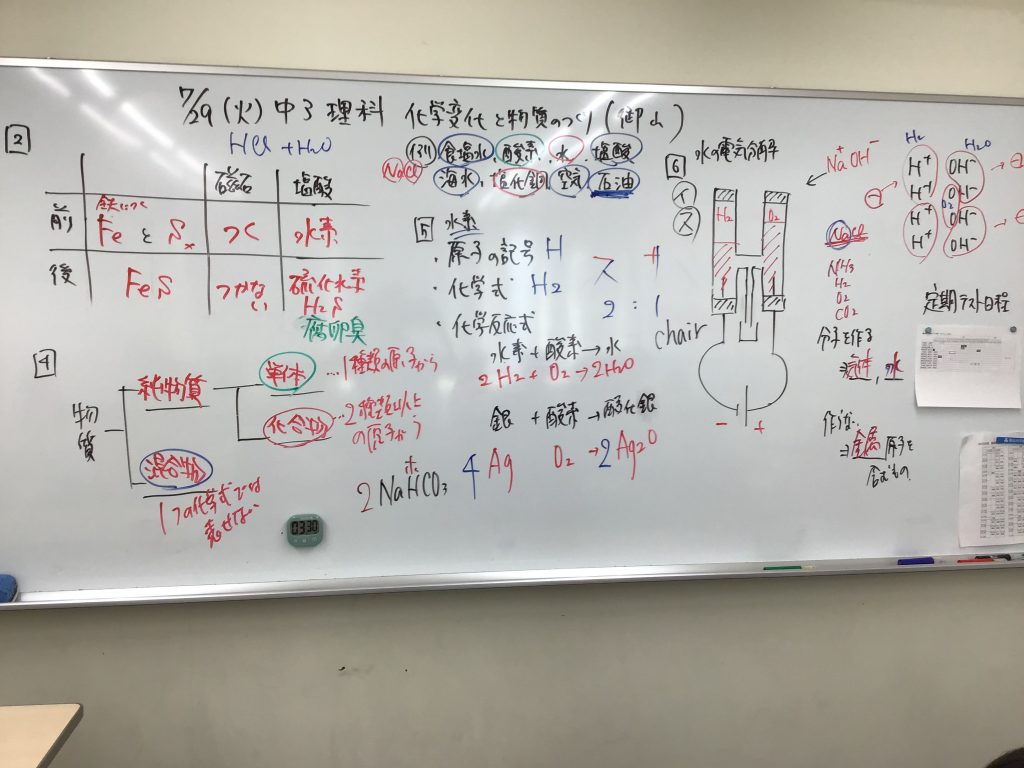 7/29 (火) 中3 理科 化学変化と物質のつくり
2
HCl + H₂O
磁石 塩酸
前 鉄につく Fe と S つく 水素
後 FeS つかない 硫化水素 H₂S
腐卵臭
4
物質
純物質
単体 … 1種類の原子から
化合物 … 2種類以上の原子から
混合物
1つの化学式では表せない
(例) 食塩水、酸素、水、塩酸
NaCl
海水、塩化銅、空気、石油
5 水素
・原子の記号 H
・化学式 H₂
2 : 1
・化学反応式
水素 + 酸素 → 水
2H₂ + O₂ → 2H₂O
銀 + 酸素 → 酸化銀
4Ag O₂ → 2Ag₂O
2NaHCO₃
03:30
6 水の電気分解
イ
ス
H₂ O₂
chair
− +
Na⁺OH⁻
H₂ H₂O
H⁺ OH⁻
H⁺ OH⁻
O₂
H⁺ OH⁻
H⁺ OH⁻
NaCl
NH₃
H₂
O₂
CO₂
分子を作る
⇒ 気体、水
⇒ 金属原子を含むもの
定期テスト日程